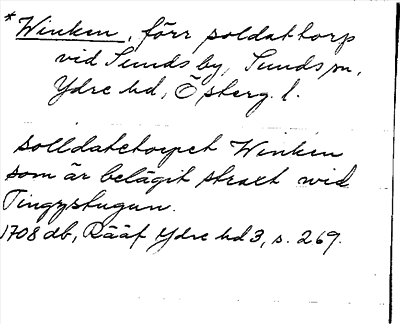 *Winken, förr soldattorp
vid Sunds by, Sunds sn,
Ydre hd, Österg. l.
solldatetorpet Winken
som är belägit straxt wid
Tingzstugun.
1708 db, Rääf Ydre hd 3, s. 269.